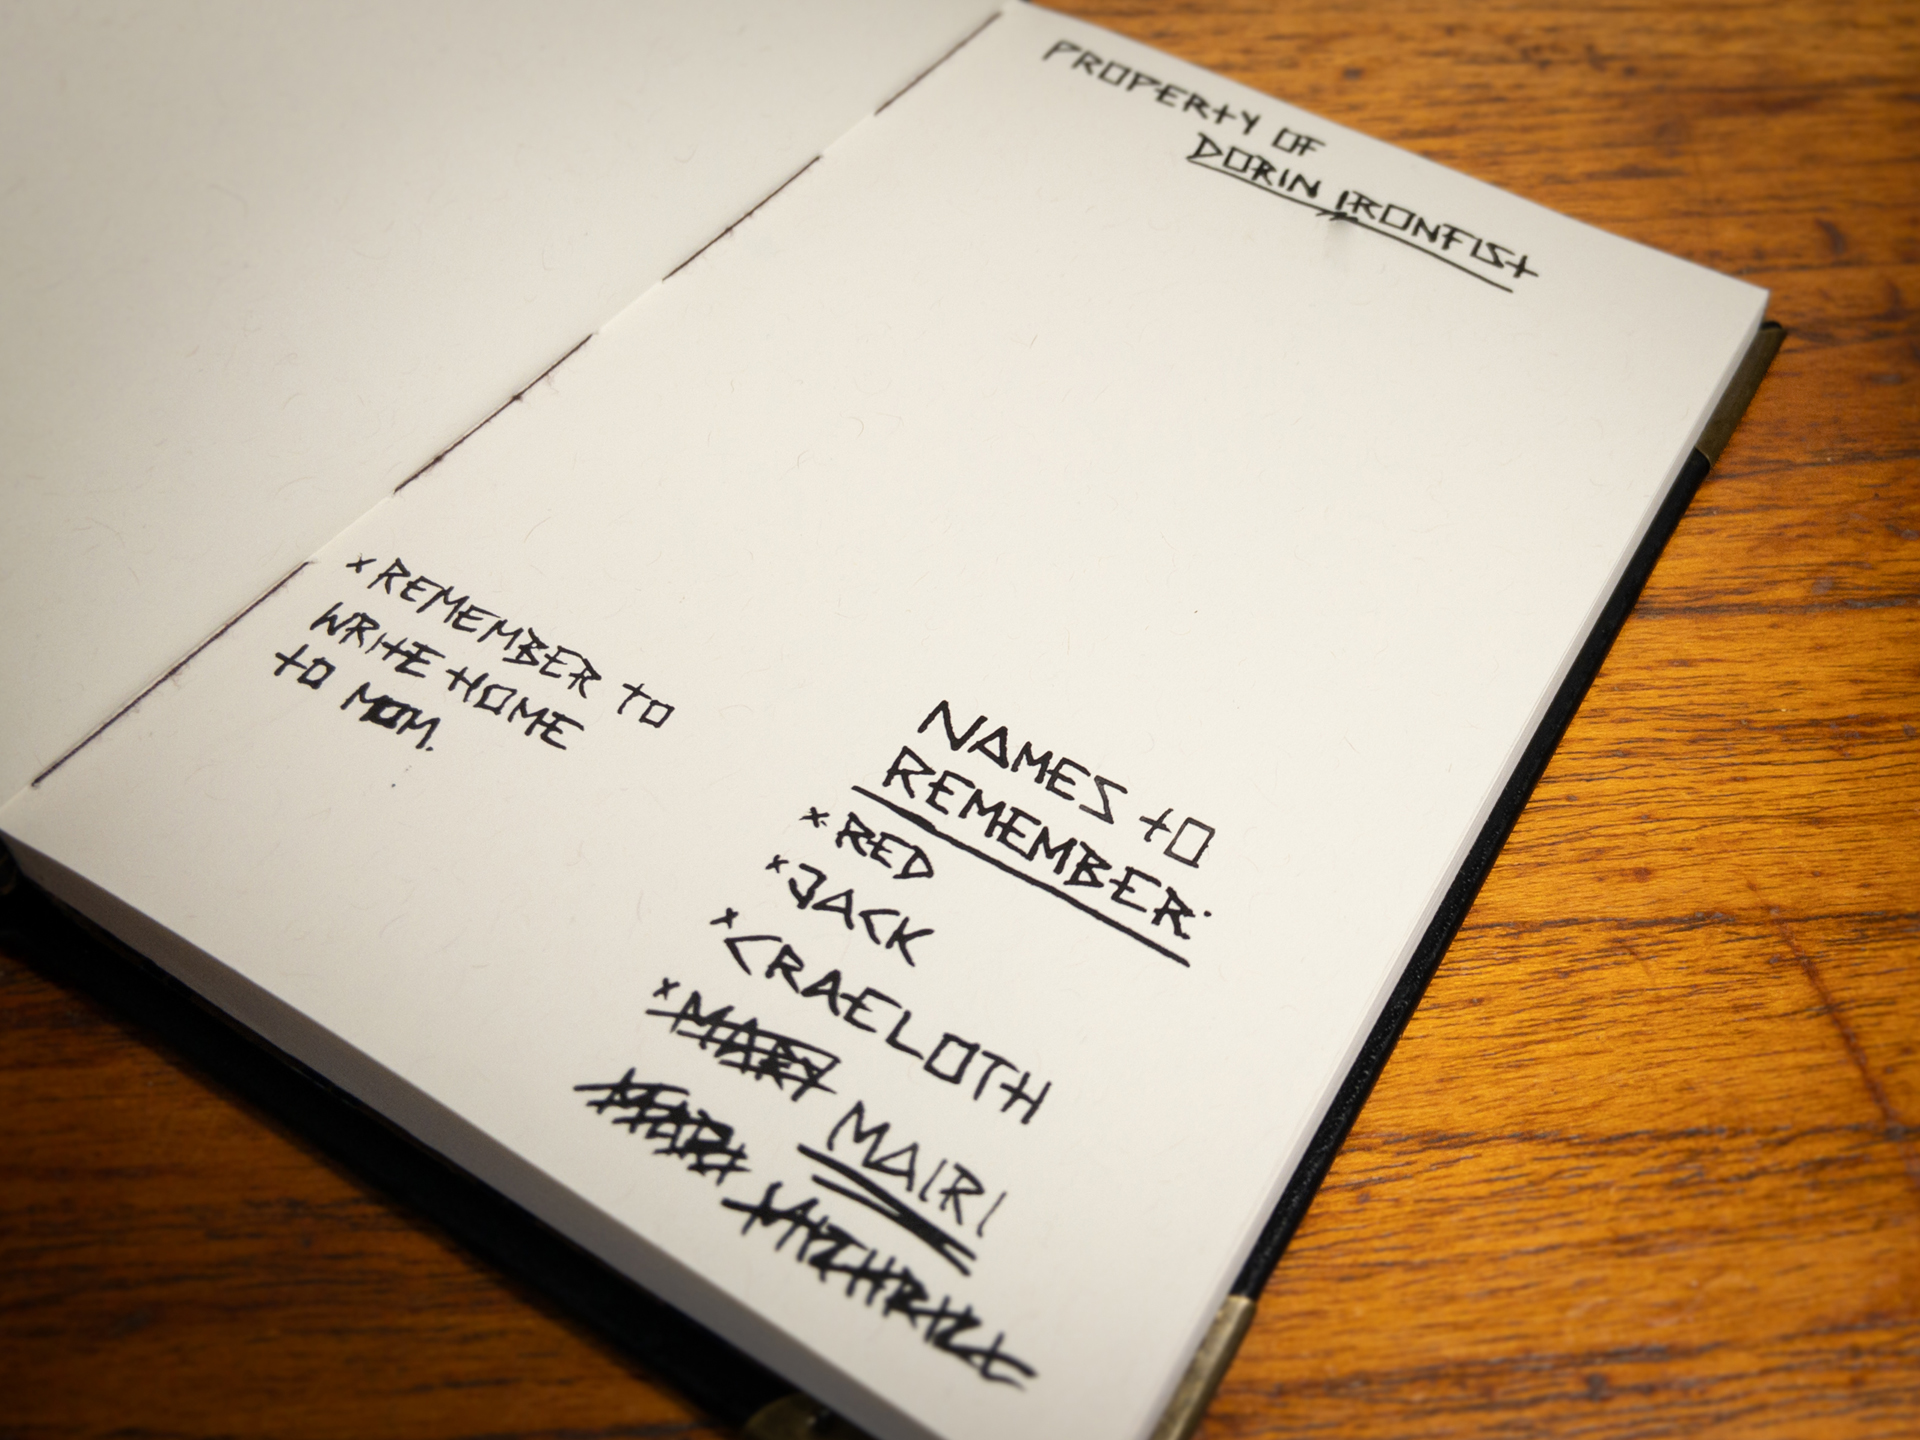 PROPERTY OF
DORIN IRONFIST
× REMEMBER TO
WRITE HOME
TO MOM.
NAMES TO
REMEMBER:
× RED
× JACK
× CRAELOTH
× MARY MAIRI